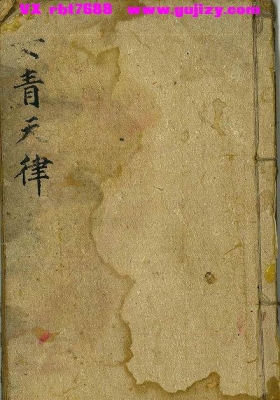 VX rbt7688 www.gujizy.com
青天律